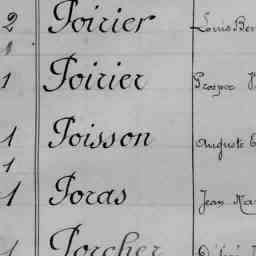 2 Poirier Louis Ber
1
1 Poirier Prosper
1 Poisson Auguste
1
1 Poras Jean
1 Porcher Désiré